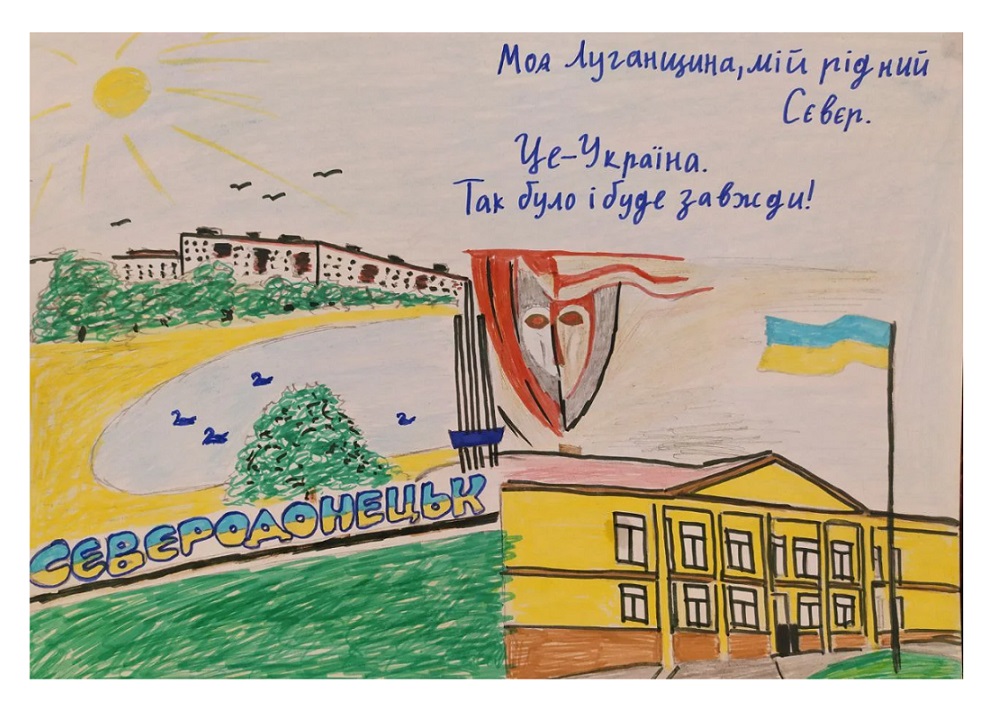 Моя Луганщина, мій рідний
Сєвєр.
Це-Україна.
Так було і буде завжди!
СЄВЄРОДОНЕЦЬК